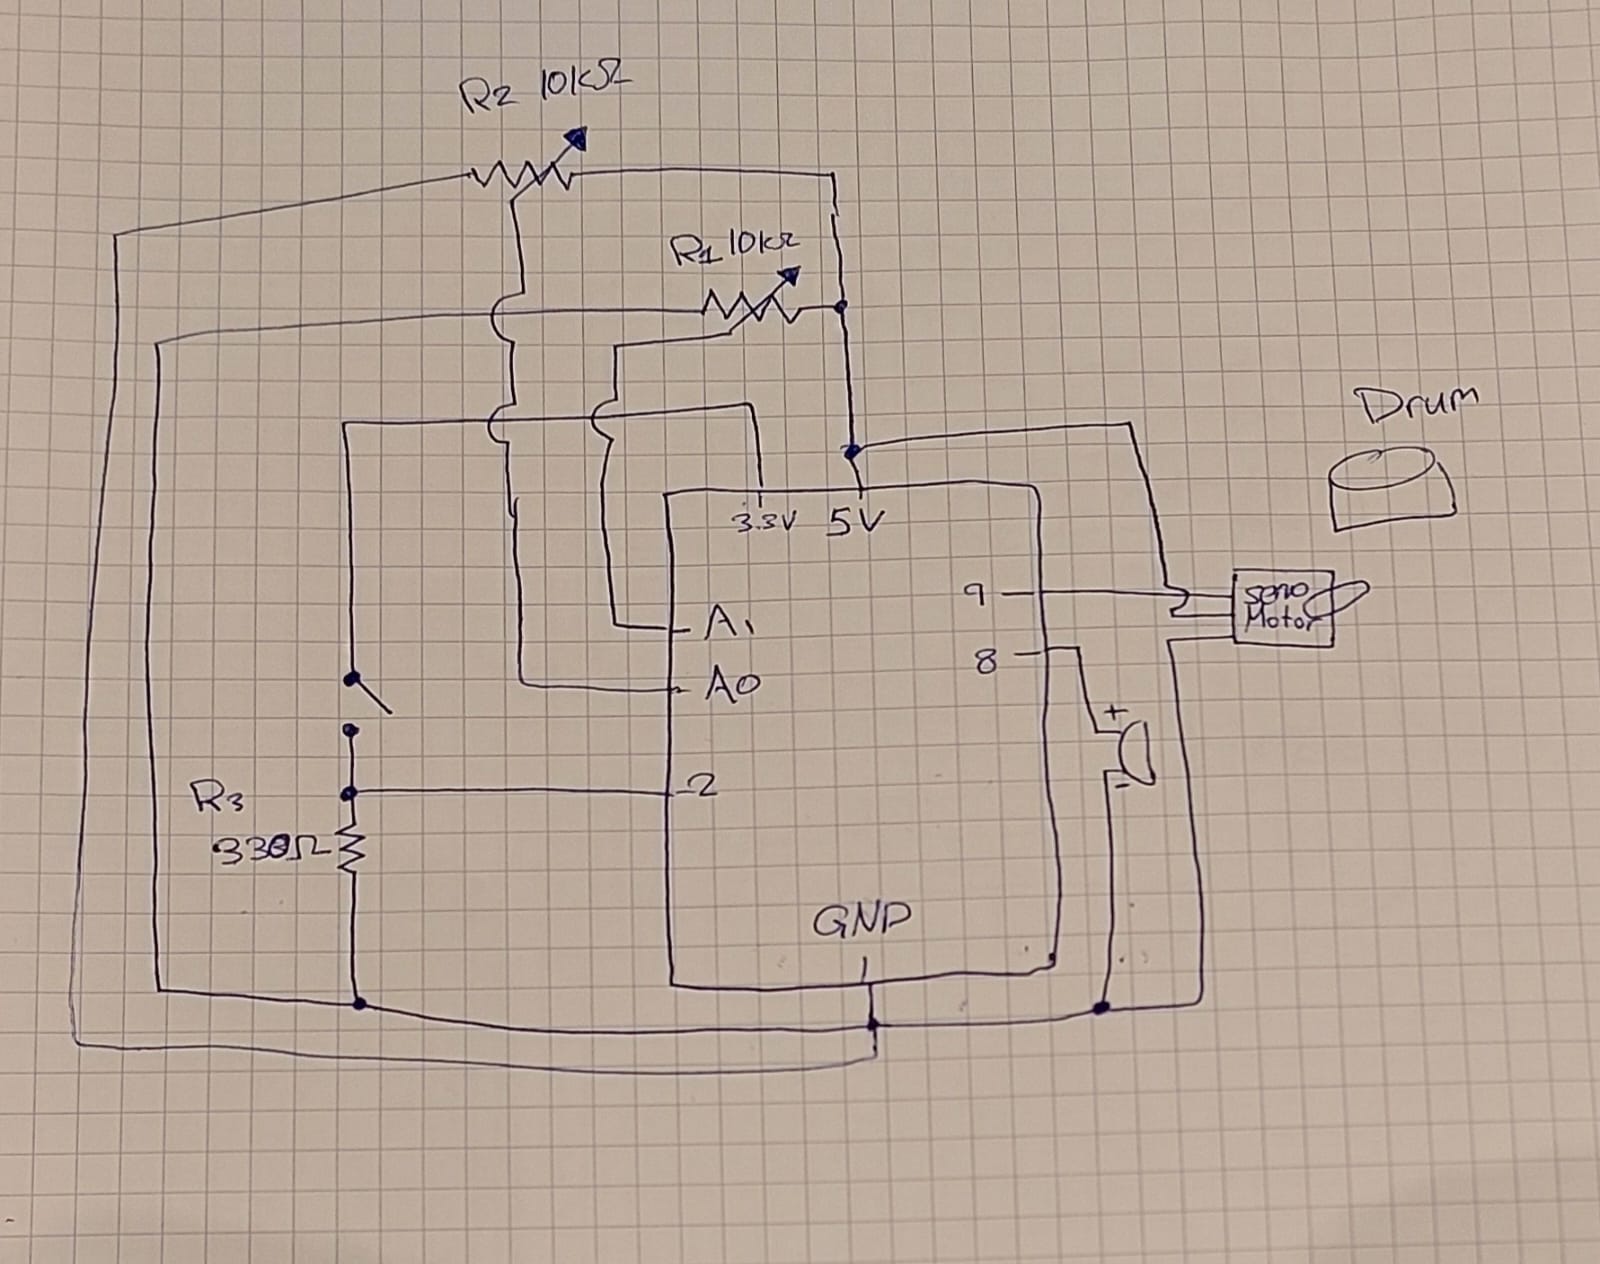 R2 10kΩ
R1 10kΩ
Drum
3.3V 5V
9
Servo
Motor
A1
8
A0
+
R3
2
-
330Ω
GND